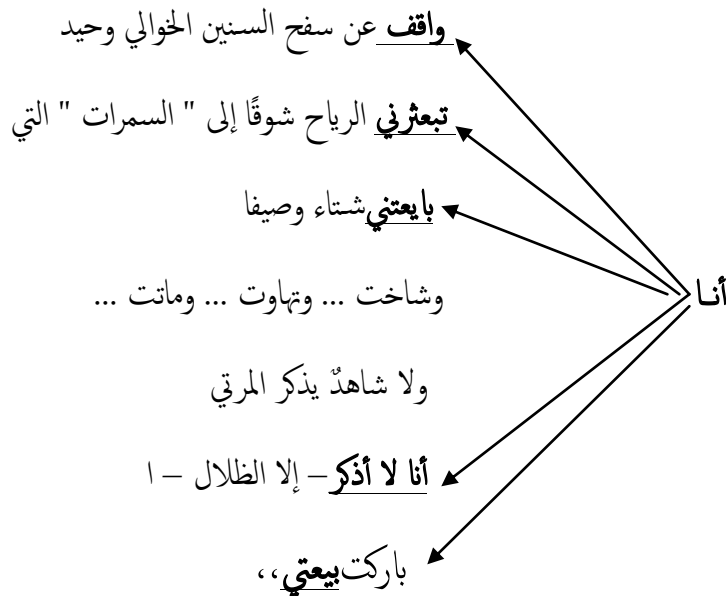 واقف عن سفح السنين الخوالي وحيد
تبعثرني الرياح شوقًا إلى " السمرات " التي
بايعتني شتاء وصيفا
أنا
وشاخت ... وتهاوت ... وماتت ...
ولا شاهدٌ يذكر المرتي
أنا لا أذكر – إلا الظلال – ا
باركت بيعتي،،